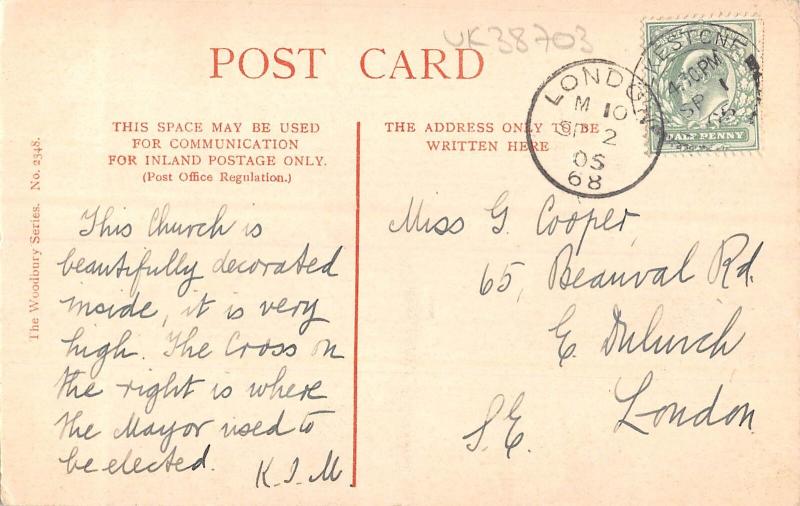 UK38703
POST CARD
THIS SPACE MAY BE USED
FOR COMMUNICATION
FOR INLAND POSTAGE ONLY.
(Post Office Regulation.)
THE ADDRESS ONLY TO BE
WRITTEN HERE
The Woodbury Series. No. 2348.
This Church is
beautifully decorated
inside, it is very
high. The Cross on
the right is where
the Mayor used to
be elected.
K. I. M
Miss G. Cooper,
65, Beauval Rd.
E. Dulwich
S.E. London.
LONDON
M 10
SP 2
05
68
KESTONE
4-30PM
SP 1
HALF PENNY